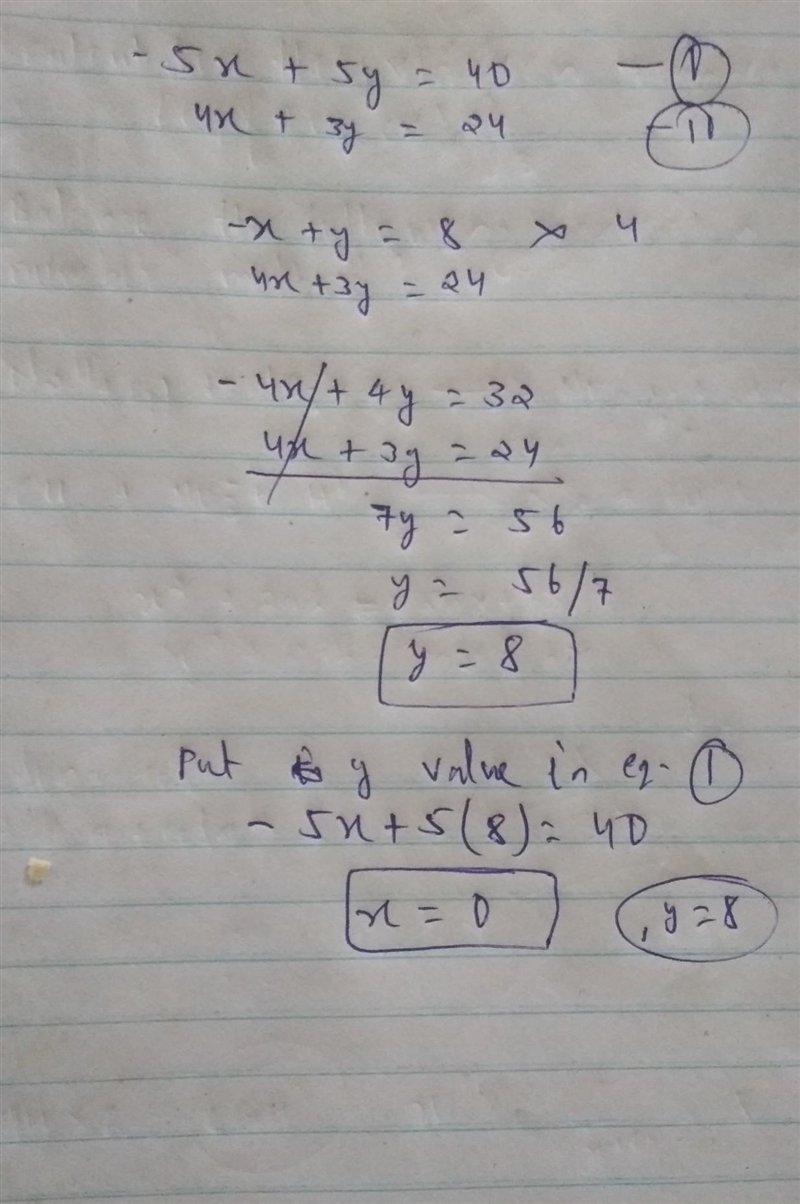 -5x + 5y = 40 — I
4x + 3y = 24 — II
-x + y = 8 × 4
4x + 3y = 24
-4x + 4y = 32
4x + 3y = 24
7y = 56
y = 56/7
y = 8
Put y value in eq. I
-5x + 5(8) = 40
x = 0 , y = 8